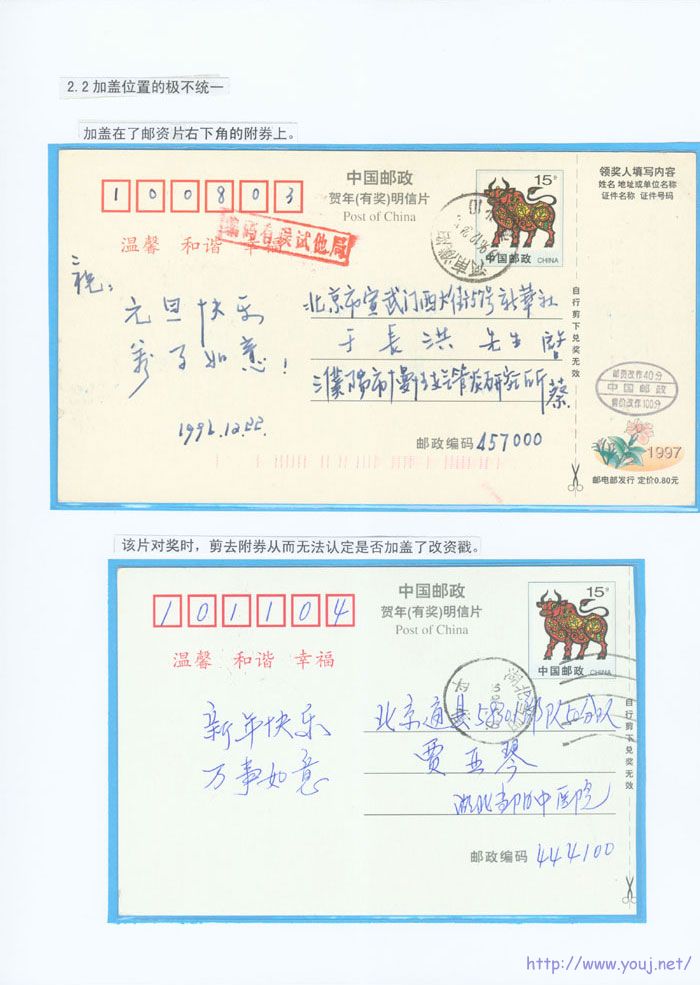 2.2加盖位置的极不统一
加盖在了邮资片右下角的附券上。
100803
中国邮政
贺年(有奖)明信片
Post of China
15分
中国邮政 CHINA
领奖人填写内容
姓名 地址或单位名称
证件名称 证件号码
温馨 和谐 幸福
编码有误试他局
祝:
元旦快乐
万事如意!
1996.12.22.
北京市宣武门西大街57号新华社
于長洪 先生
自行剪下兑奖无效
邮资改作40分
中国邮政
售价改作100分
邮政编码 457000
1997
邮电部发行 定价0.80元
该片对奖时,剪去附券从而无法认定是否加盖了改资戳。
101104
中国邮政
贺年(有奖)明信片
Post of China
15分
中国邮政 CHINA
温馨 和谐 幸福
新年快乐
万事如意
北京通县58301部队50分队
贾亚琴
自行剪下兑奖无效
邮政编码 444100
http://www.youj.net/